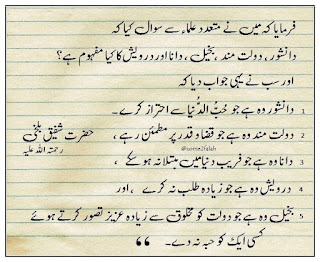 فرمایا کہ میں نے متعدد علماء سے سوال کیا کہ
دانشور، دولت مند، بخیل، دانا اور درویش کا کیا مفہوم ہے؟
اور سب نے یہی جواب دیا کہ
1 دانشور وہ ہے جو حُبُّ الدُّنیا سے احتراز کرے۔
2 دولت مند وہ ہے جو قضا و قدر پر مطمئن رہے،
حضرت شفیق بلخی
رحمتہ اللہ علیہ
@come2falah
3 دانا وہ ہے جو فریب دنیا میں مبتلا نہ ہو سکے،
4 درویش وہ ہے جو زیادہ طلب نہ کرے، اور
5 بخیل وہ ہے جو دولت کو مخلوق سے زیادہ عزیز تصور کرتے ہوئے
کسی ایک کو حبہ نہ دے۔